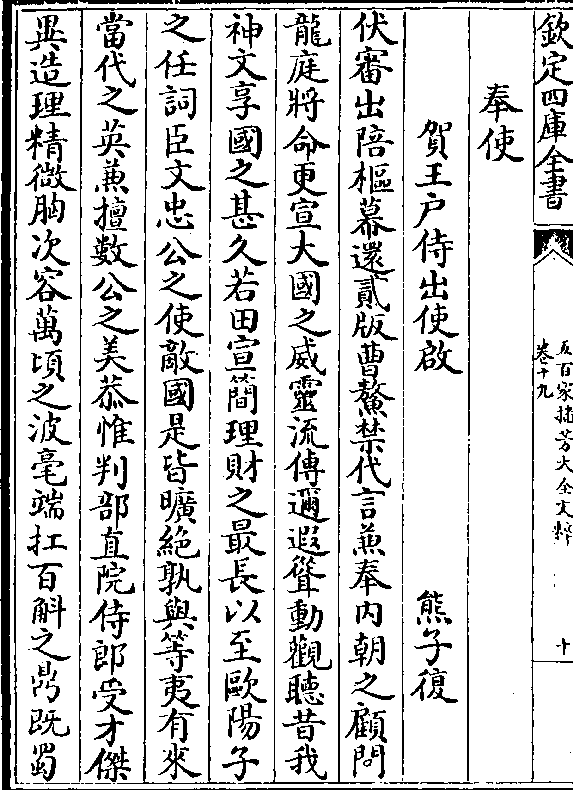 欽定四庫全書
五百家播芳大全文粹
卷十九
十
奉使
賀王户侍出使啟 熊子復
伏審出陪樞幕還貳版曹鰲禁代言兼奉内朝之顧問
龍庭將命更宣大國之威靈流傳邇遐聳動觀聽昔我
神文享國之甚久若田宣簡理財之最長以至歐陽子
之任詞臣文忠公之使敵國是皆曠絶孰與等夷有來
當代之英兼擅數公之美恭惟判部直院侍郎受才傑
異造理精微胸次容萬頃之波毫端扛百斛之鼎既蜀